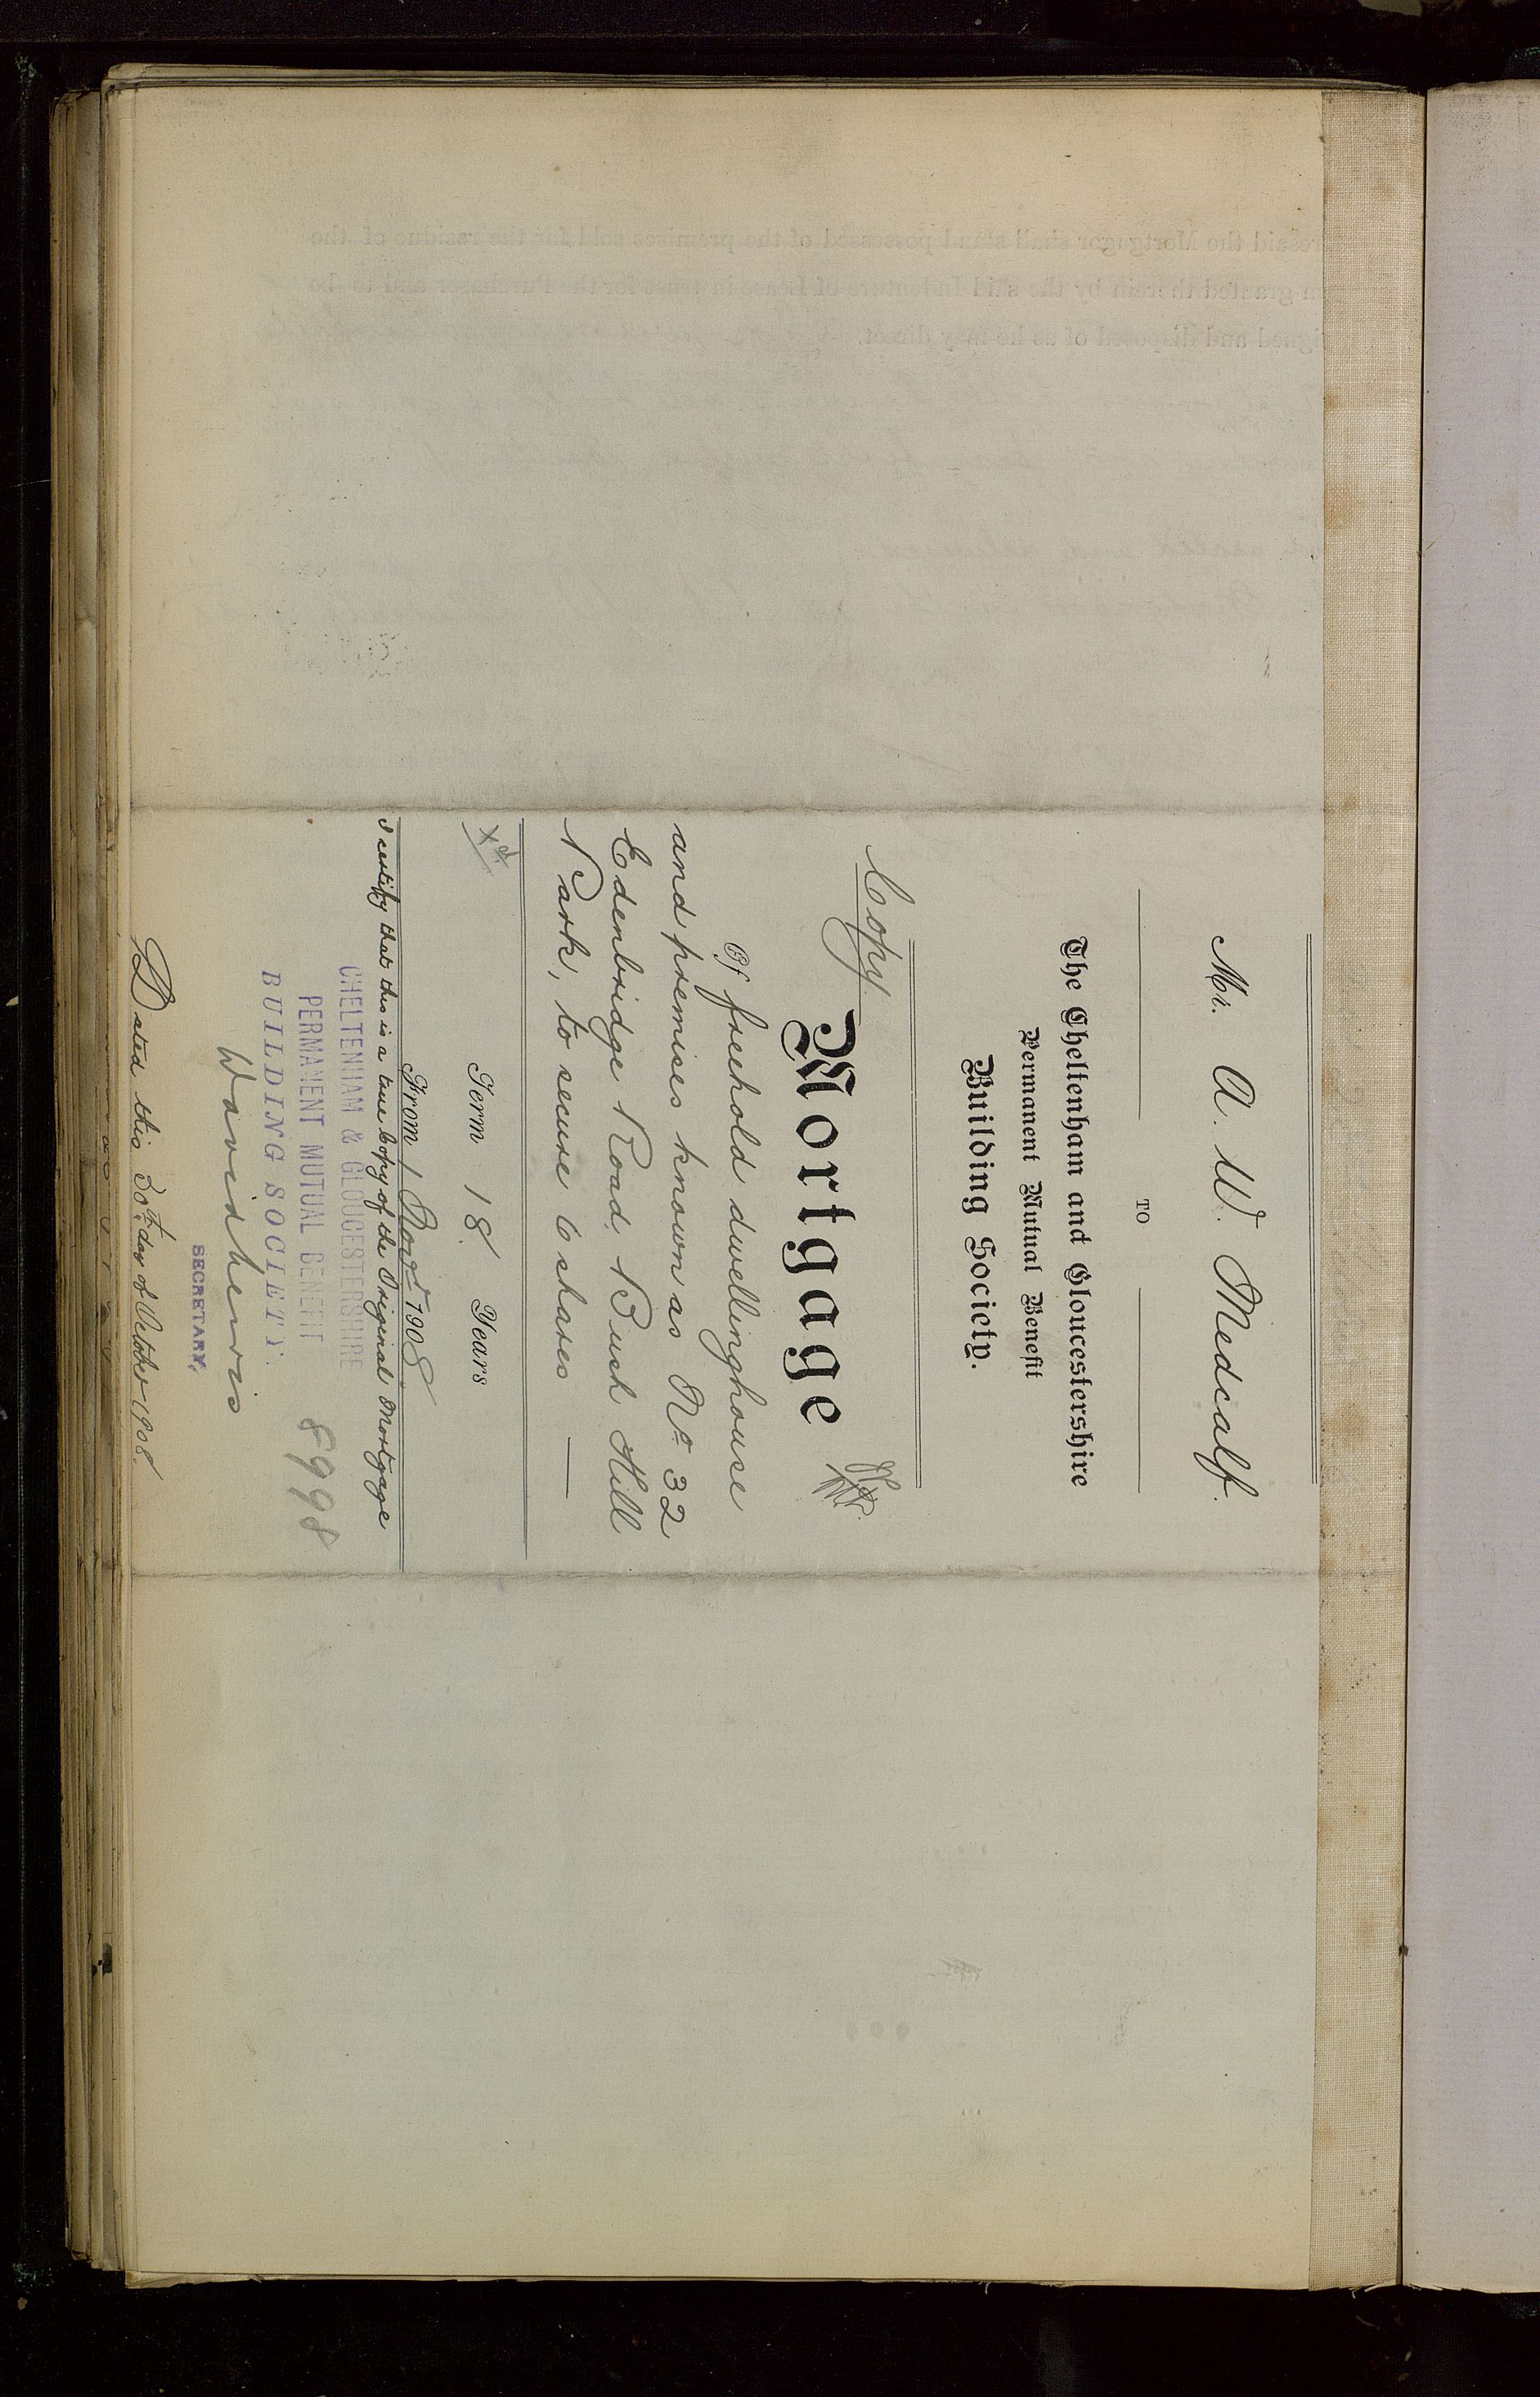 Mr. A. W. Medcalf.
TO
The Cheltenham and Gloucestershire
Permanent Mutual Benefit
Building Society.
Copy.
Mortgage
Of freehold dwellinghouse
and premises known as No. 32
Edenbridge Road, Bush Hill
Park, to secure 6 shares —
Term 18 Years
From 1 Novr 1908
I certify that this is a true copy of the Original Mortgage
CHELTENHAM & GLOUCESTERSHIRE
PERMANENT MUTUAL BENEFIT
BUILDING SOCIETY.
8998
SECRETARY.
Dated this 30th day of October 1908.